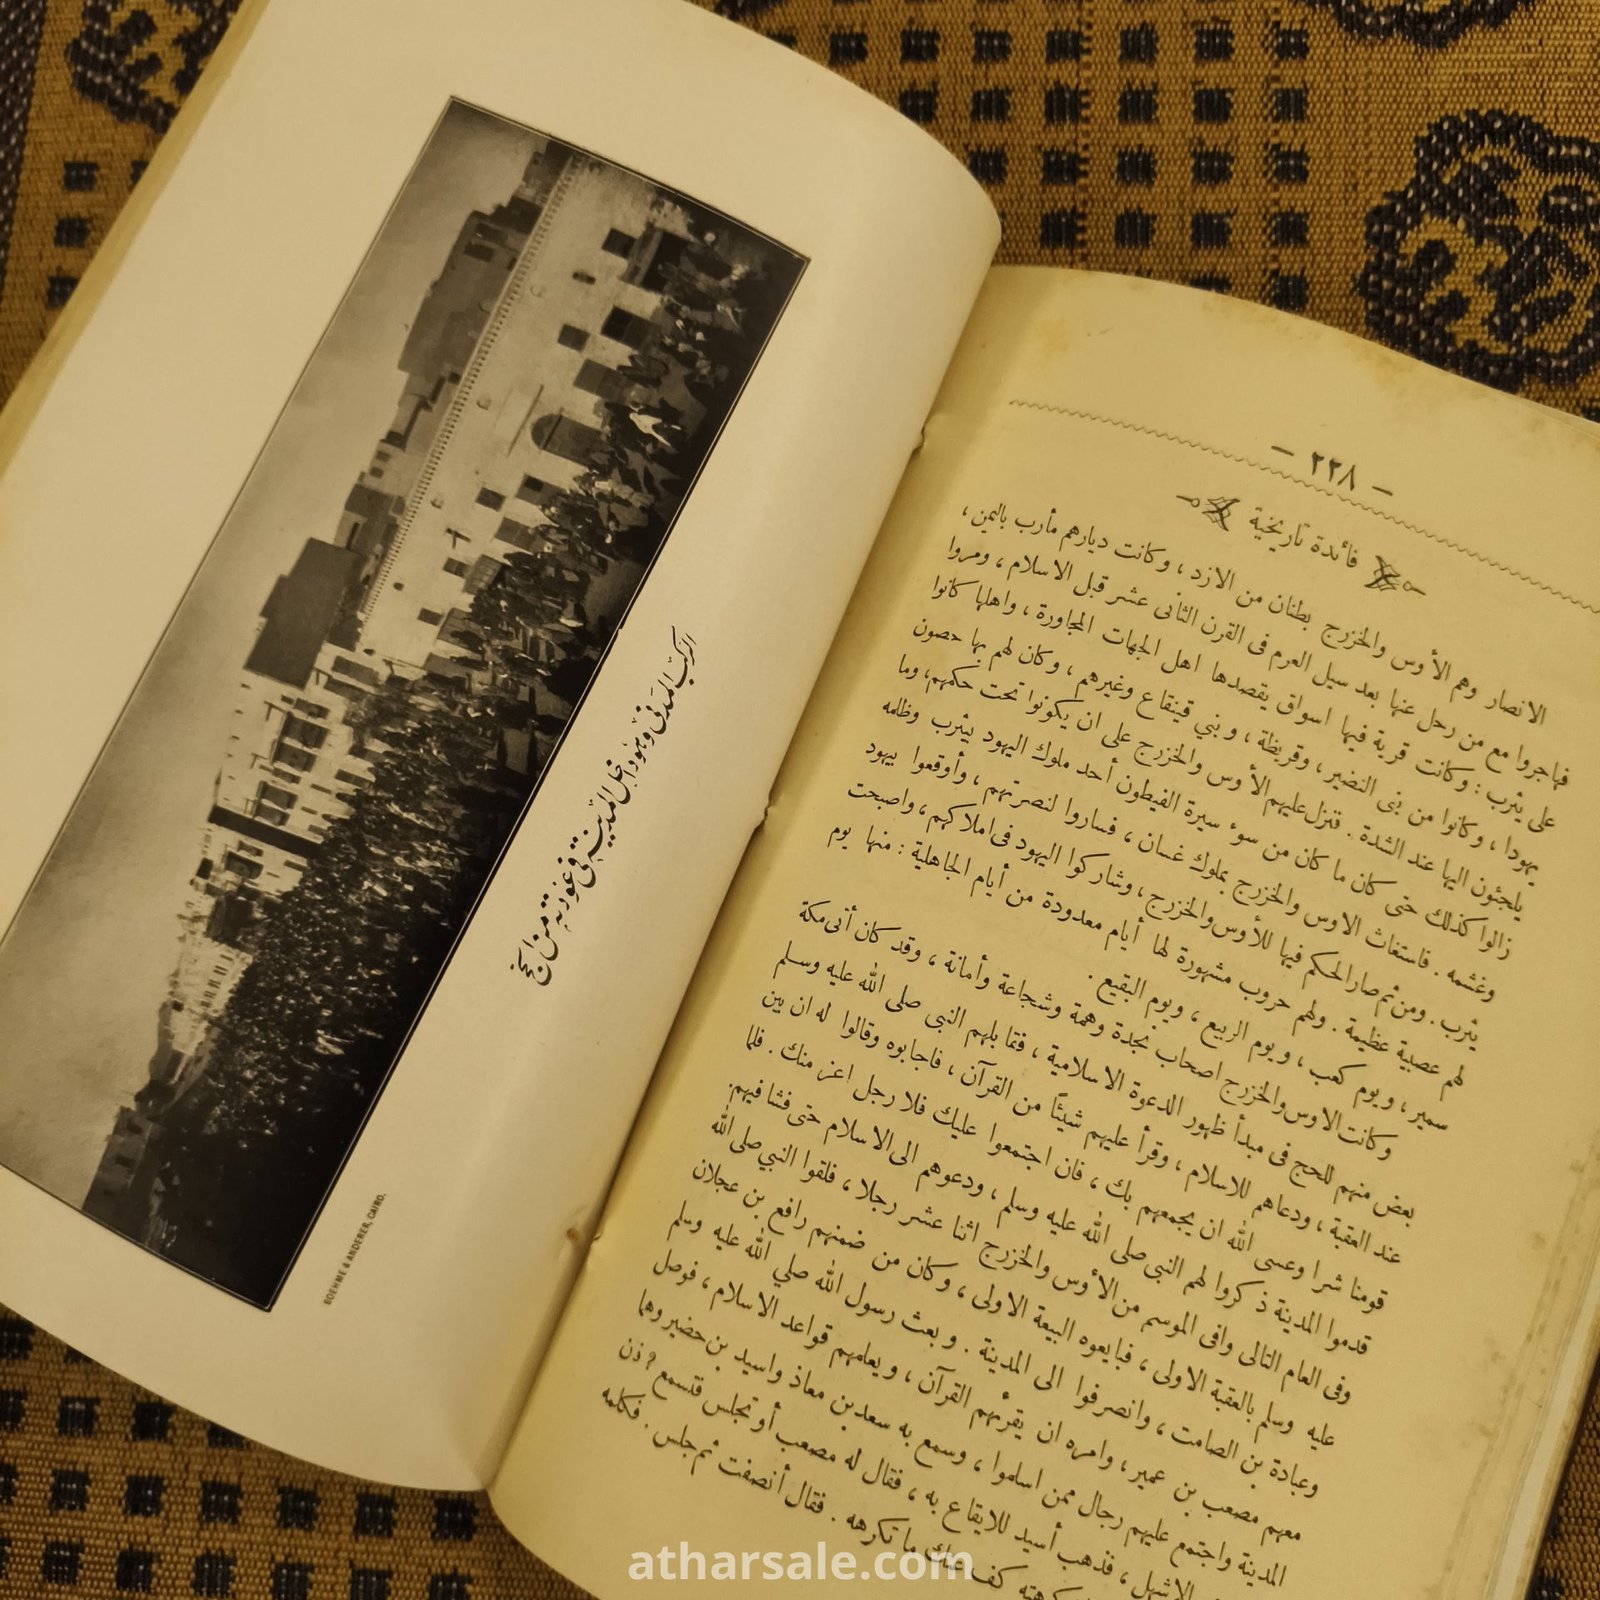 — ٢٢٨ —
فائدة تاريخية
الانصار وهم الأوس والخزرج بطنان من الازد ، وكانت ديارهم مأرب باليمن ،
فهاجروا مع من رحل عنها بعد سيل العرم فى القرن الثانى عشر قبل الاسلام ، ومروا
على يثرب : وكانت قرية فيها اسواق يقصدها اهل الجهات المجاورة ، واهلها كانوا
يهودا ، وكانوا من بنى النضير ، وقريظة ، وبني قينقاع وغيرهم ، وكان لهم بها حصون
يلجئون اليها عند الشدة . فنزل عليهم الأوس والخزرج على ان يكونوا تحت حكمهم ، وما
زالوا كذلك حتى كان ما كان من سوء سيرة الفيطون أحد ملوك اليهود بيثرب وظلمه
وغشمه . فاستغاث الاوس والخزرج بملوك غسان ، فساروا لنصرتهم ، وأوقعوا بيهود
يثرب . ومن ثم صار الحكم فيها للأوس والخزرج ، وشاركوا اليهود فى املاكهم ، واصبحت
لهم عصبية عظيمة . ولهم حروب مشهورة لها أيام معدودة من أيام الجاهلية : منها يوم
سمير ، ويوم كعب ، ويوم الربيع ، ويوم البقيع .
وكانت الاوس والخزرج اصحاب نجدة وهمة وشجاعة وأمانة ، وقد كان أتى مكة
بعض منهم للحج فى مبدأ ظهور الدعوة الاسلامية ، فقابلهم النبى صلى الله عليه وسلم
عند العقبة ، ودعاهم للاسلام ، وقرأ عليهم شيئًا من القرآن ، فاجابوه وقالوا له ان بين
قومنا شرا وعسى الله ان يجمعهم بك ، فان اجتمعوا عليك فلا رجل اعز منك . فلما
قدموا المدينة ذكروا لهم النبى صلى الله عليه وسلم ، ودعوهم الى الاسلام حتى فشا فيهم .
وفى العام التالى وافى الموسم من الأوس والخزرج اثنا عشر رجلا ، فلقوا النبي صلى الله
عليه وسلم بالعقبة الاولى ، فبايعوه البيعة الاولى ، وكان من ضمنهم رافع بن عجلان
وعبادة بن الصامت ، وانصرفوا الى المدينة . وبعث رسول الله صلي الله عليه وسلم
معهم مصعب بن عمير ، وامره ان يقرئهم القرآن ، ويعلمهم قواعد الاسلام ، فوصل
المدينة واجتمع عليهم رجال ممن اسلموا ، وسمع به سعد بن معاذ واسيد بن حضير وهما
الاشهل ، فذهب أسيد للايقاع به ، فقال له مصعب أو تجلس فتسمع
كرهته كف عنك ما تكرهه . فقال أنصفت ثم جلس . فكلمه
الركب المدنى وهو داخل المدينة فى عودته من الحج
BOEHME & ANDERER, CAIRO.
atharsale.com